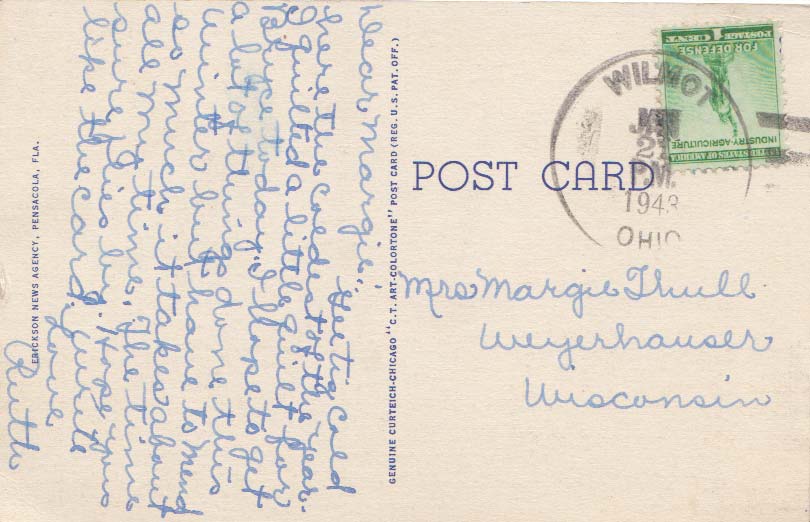 Dear Margie,
Gee tis cold
here the coldest of the year.
I quilted a little quilt for
Bruce to day. I hope to get
a lot of things done this
winter but have to mend
so much it takes about
all my time. The time
sure flies by. Hope you
like the card. Write
Love
Ruth
ERICKSON NEWS AGENCY, PENSACOLA, FLA.
GENUINE CURTEICH-CHICAGO "C.T. ART-COLORTONE" POST CARD (REG. U.S. PAT. OFF.)
POST CARD
WILMOT
JAN
2
PM
1943
OHIO
UNITED STATES OF AMERICA
INDUSTRY-AGRICULTURE
FOR DEFENSE
POSTAGE 1 CENT
Mrs Margie Thull
Weyerhauser
Wisconsin